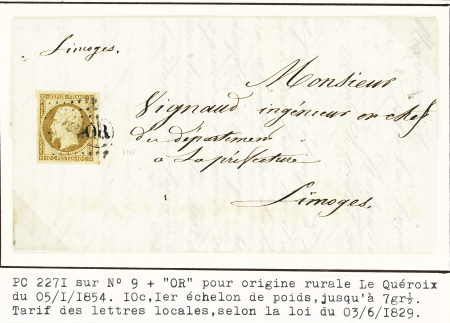 Limoges.
Monsieur
Vignaud ingénieur en chef
du département
à la préfecture
Limoges.
REPUB. FRANC.
OR
10 c. POSTES 10 c.
PC 227I sur N° 9 + "OR" pour origine rurale Le Quéroix
du 05/I/1854. I0c,Ier échelon de poids,jusqu'à 7gr½.
Tarif des lettres locales,selon la loi du 03/6/1829.